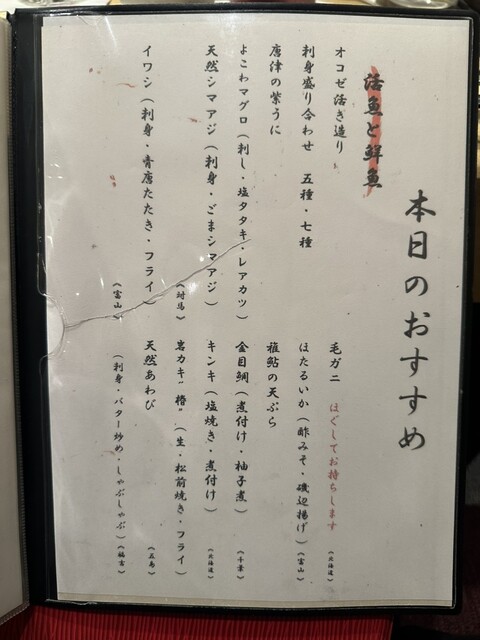 本日のおすすめ
活魚と鮮魚
オコゼ活き造り
刺身盛り合わせ 五種・七種
唐津の紫うに
よこわマグロ(刺し・塩タタキ・レアカツ)
天然シマアジ(刺身・ごまシマアジ)
《対馬》
イワシ(刺身・青唐たたき・フライ)
《富山》
毛ガニ ほぐしてお持ちします
《北海道》
ほたるいか(酢みそ・磯辺揚げ)《富山》
稚鮎の天ぷら
金目鯛(煮付け・柚子煮)《千葉》
キンキ(塩焼き・煮付け)《北海道》
岩カキ"椿"(生・松前焼き・フライ)
《五島》
天然あわび
(刺身・バター炒め・しゃぶしゃぶ)《福吉》